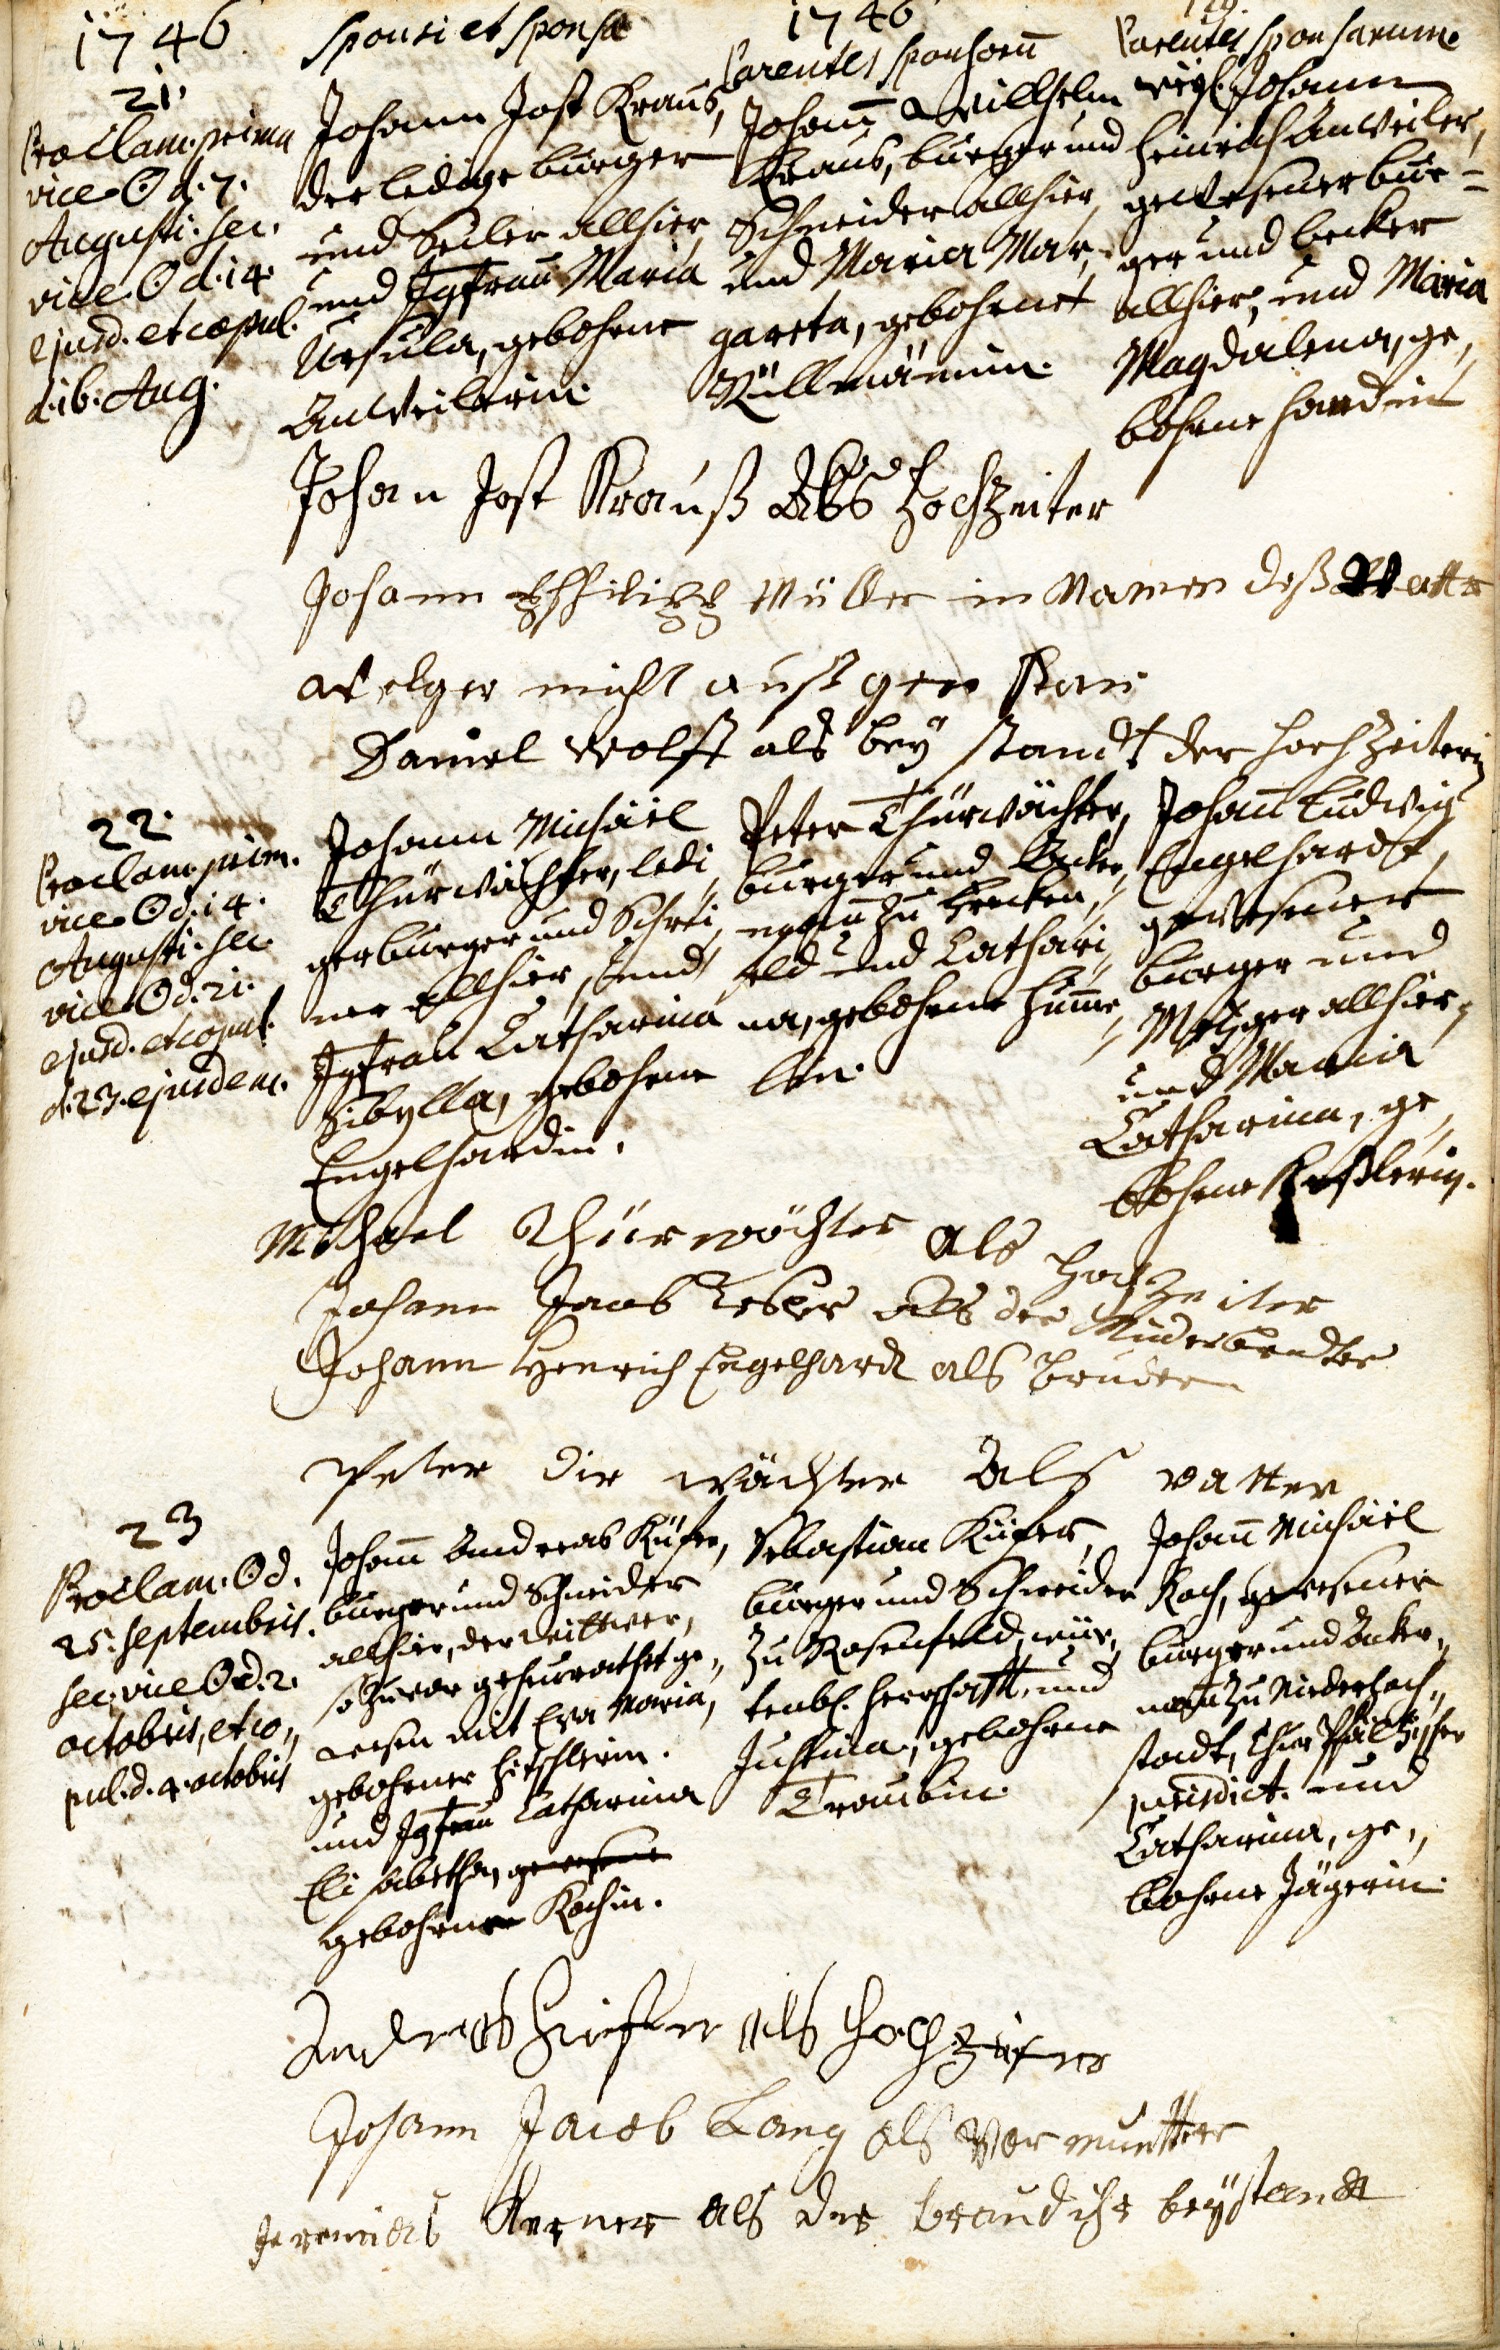 1746. Sponsi et Sponsæ
1746
129.
Parentes Sponsorū
Parentes Sponsarum.
21.
Proclam. prima
vice ☉ d. 7.
Augusti. sec.
vice ☉ d. 14.
ejusd. et copul.
d. 16. Aug.
Johann Jost Kraus,
der ledige burger
und Seiler allhier,
und Jgfrau Maria
Ursula, gebohrne
Anweilerin.
Johañ Willhelm
Kraus, burger und
Schneider allhier,
und Maria Mar,,
gareta, gebohrne
Küllmännin.
weyl. Johann
Heinrich Anweiler,
gewesener bur=
ger und becker
allhier, und Maria
Magdalena, ge,,
bohrne Hardin
Johan Jost Krauß Als Hochzeiter
Johann Phhilipp Müller in Namen deß Vatt
welger nicht auß gen kan
Daniel Wolff als bey standt der hochzeiterin
22.
Proclam. prim.
vice ☉ d. 14.
Augusti. sec.
vice ☉ d. 21.
ejusd. et copul.
d. 23. ejusdem.
Johann Michäel
Thürwächter, ledi,,
ger burger und Schrei,,
ner allhier, und
Jgfrau Catharina
Sibylla, gebohrne
Engelhardin.
Peter Thürwächter,
burger und Acker,,
mañ zu
feld und Cathari,,
na, gebohrne Humme,,
lin.
Johañ Ludwig
Engelhardt,
gewesener
burger und
Metzger allhier,
und Maria
Catharina, ge,,
bohrne Keßlerin.
Michael Thürwächter als Hochzeiter
Johann Jacob als der
Johann Henrich Engelhardt als bruder
Peter dir wächter Als vatter
23
Proclam. ☉ d.
25. Septembris.
sec. vice ☉ d. 2.
octobris, et co,,
pul. d. 4. octobris
Johañ Andreas Küfer,
burger und Schneider
allhier, der wittwer,
so zuvor geheurathet ge,,
wesen mit Eva Maria,
gebohrner Hitschlerin.
und Jgfrau Catharina
Elisabetha, gewesene
gebohrne Kochin.
Sebastian Küfer,
burger und Schneider
zu Rosenfeld, wür,,
tenb. Herrschafft, und
Justina, gebohrne
Traubin.
Johañ Michäel
Koch, gewesener
burger und Acker,,
mañ zu Niederhoch,,
stadt, Chur Pfältzischer
jurisdict. und
Catharina, ge,,
bohrne Jägerin.
Andreas Kiefer als hochzeiter
Johann Jacob Lang als Vormuntter
Jeremias Kerner als der braud ihr beystandt